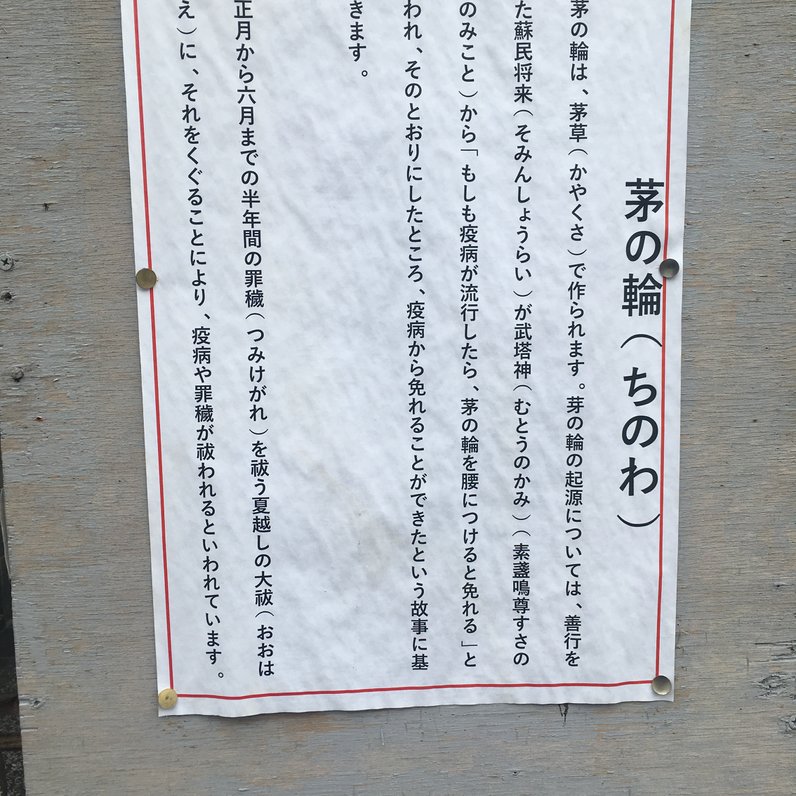 茅の輪（ちのわ）
茅の輪は、茅草（かやくさ）で作られます。芽の輪の起源については、善行を
た蘇民将来（そみんしょうらい）が武塔神（むとうのかみ）（素盞鳴尊すさの
のみこと）から「もしも疫病が流行したら、茅の輪を腰につけると免れる」と
われ、そのとおりにしたところ、疫病から免れることができたという故事に基
きます。
正月から六月までの半年間の罪穢（つみけがれ）を祓う夏越しの大祓（おおは
え）に、それをくぐることにより、疫病や罪穢が祓われるといわれています。